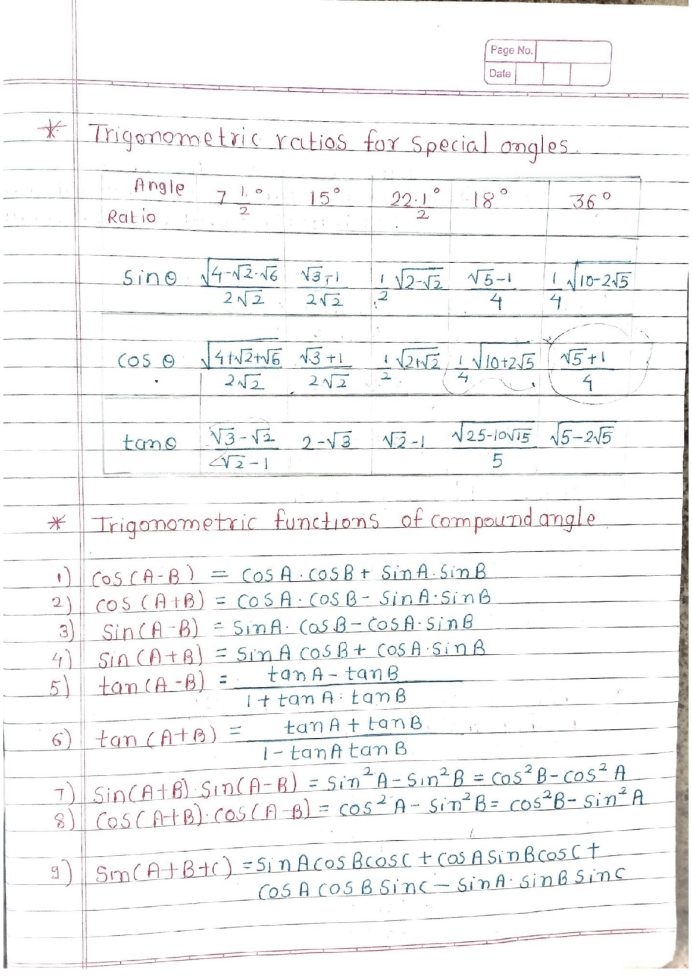 Page No.
Date
* Trigonometric ratios for special angles.
Angle 7 1/2° 15° 22·1/2° 18° 36°
Ratio
sinθ √(4-√2-√6)/2√2 (√3-1)/2√2 1/2 √(2-√2) (√5-1)/4 1/4 √(10-2√5)
cosθ √(4+√2+√6)/2√2 (√3+1)/2√2 1/2 √(2+√2) 1/4 √(10+2√5) (√5+1)/4
tanθ (√3-√2)/(√2-1) 2-√3 √2-1 √(25-10√15)/5 √(5-2√5)
* Trigonometric functions of compound angle
1) cos(A-B) = cosA·cosB + sinA·sinB
2) cos(A+B) = cosA·cosB - sinA·sinB
3) sin(A-B) = sinA·cosB - cosA·sinB
4) sin(A+B) = sinA cosB + cosA·sinB
5) tan(A-B) = (tanA - tanB)/(1 + tanA·tanB)
6) tan(A+B) = (tanA + tanB)/(1 - tanA tanB)
7) sin(A+B)·sin(A-B) = sin²A - sin²B = cos²B - cos²A
8) cos(A+B)·cos(A-B) = cos²A - sin²B = cos²B - sin²A
9) sin(A+B+C) = sinA cosB cosC + cosA sinB cosC +
cosA cosB sinC - sinA·sinB sinC